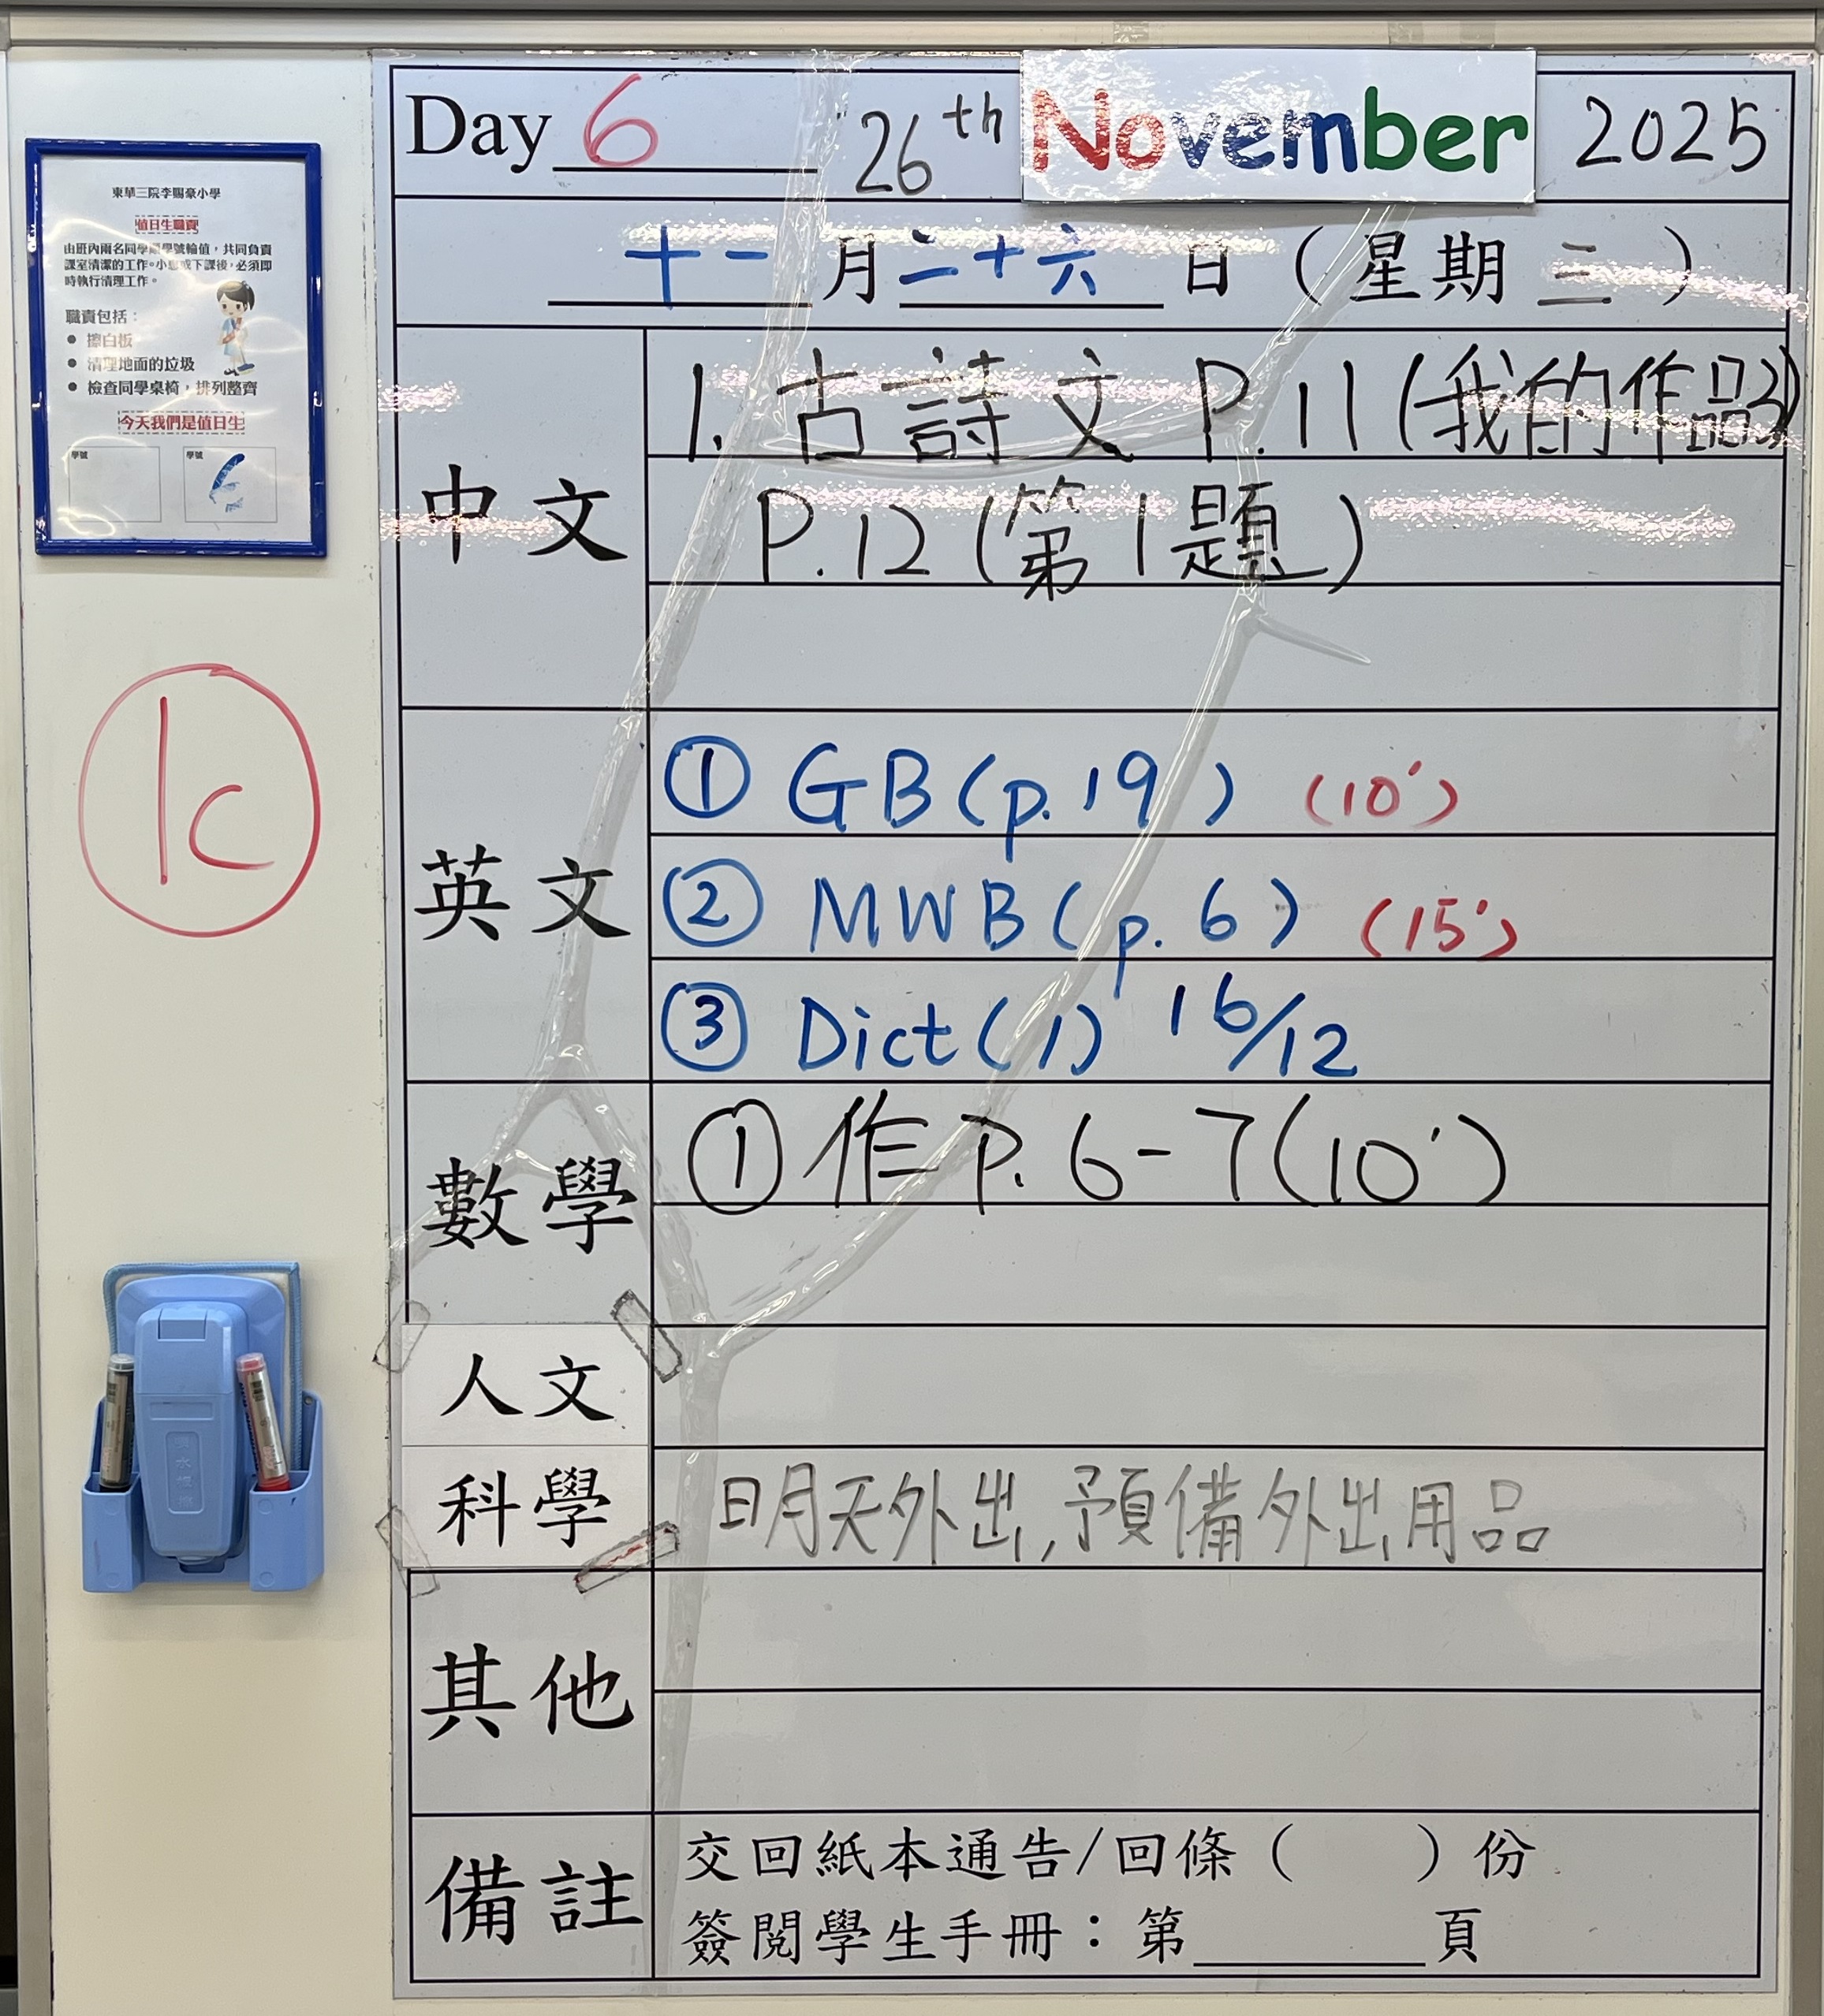 Day 6 26th November 2025
十一月二十六日（星期三）
中文
1. 古詩文 P.11 (我的作品3)
P.12 (第1題)
英文
① GB (p.19) (10')
② MWB (p.6) (15')
③ Dict (1) 16/12
數學
① 作 P. 6-7 (10')
人文
科學
明天外出,預備外出用品
其他
備註
交回紙本通告/回條（　　）份
簽閱學生手冊：第________頁
東華三院李賜豪小學
值日生職責
由班內兩名同學學號輪值，共同負責
課室清潔的工作。小息或下課後，必須即
時執行清理工作。
職責包括：
● 擦白板
● 清理地面的垃圾
● 檢查同學桌椅，排列整齊
今天我們是值日生
學號
學號
1c